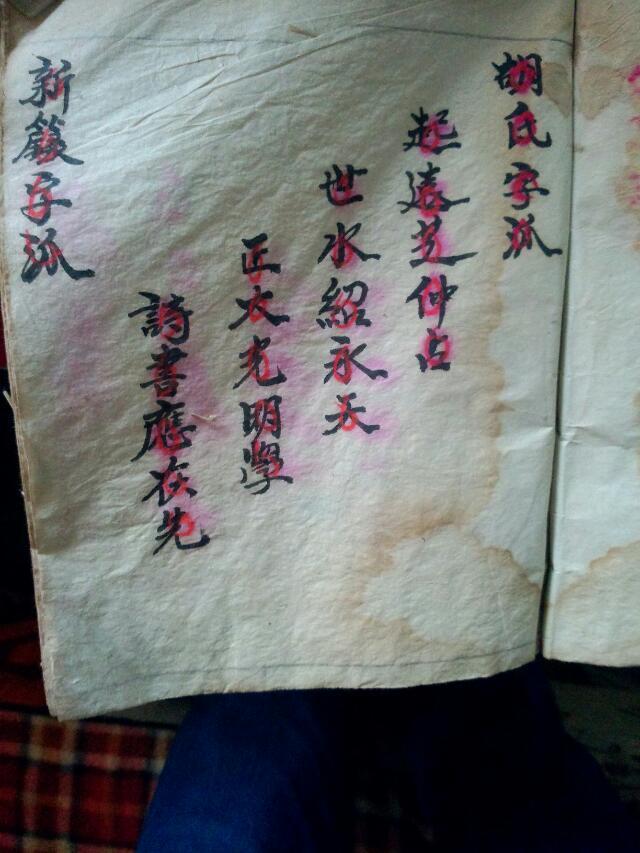 胡氏字派
起遠芝仲占
世水紹永天
正大光明學
詩書應在先
新篡字派